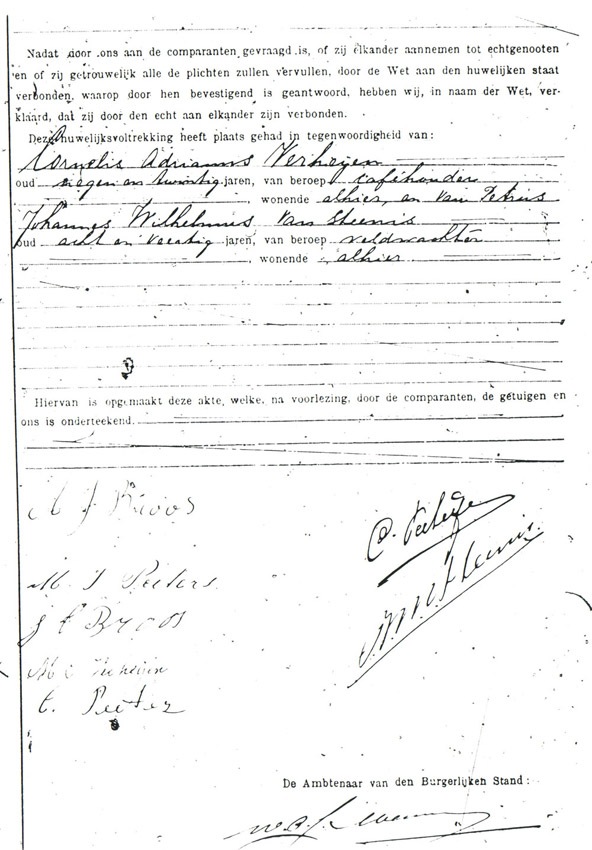 Nadat door ons aan de comparanten gevraagd is, of zij elkander aannemen tot echtgenooten
en of zij getrouwelijk alle de plichten zullen vervullen, door de Wet aan den huwelijken staat
verbonden, waarop door hen bevestigend is geantwoord, hebben wij, in naam der Wet, ver-
klaard, dat zij door den echt aan elkander zijn verbonden.
Deze huwelijksvoltrekking heeft plaats gehad in tegenwoordigheid van:
Cornelis Adrianus Verheijen
oud negen en twintig jaren, van beroep caféhouder
, wonende alhier, en van Petrus
Johannes Wilhelmus van Steenis
oud acht en veertig jaren, van beroep veldwachter
, wonende alhier
Hiervan is opgemaakt deze akte, welke, na voorlezing, door de comparanten, de getuigen en
ons is onderteekend.
A J Broos
M. J Peeters
J C Broos
C. Peeters
De Ambtenaar van den Burgerlijken Stand: